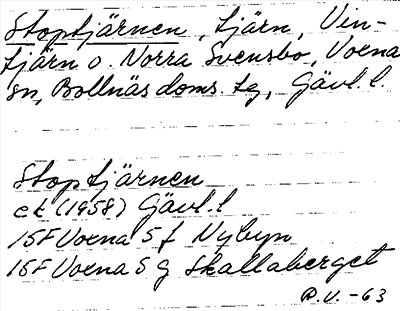 Stoptjärnen, tjärn, Vin-
tjärn o. Norra Svensbo, Voxna
sn, Bollnäs doms. tg, Gävl. l.
Stoptjärnen
ek (1958) Gävl. l
15F Voxna 5 f Nybyn
15F Voxna 5 g Skallaberget
R.V. -63